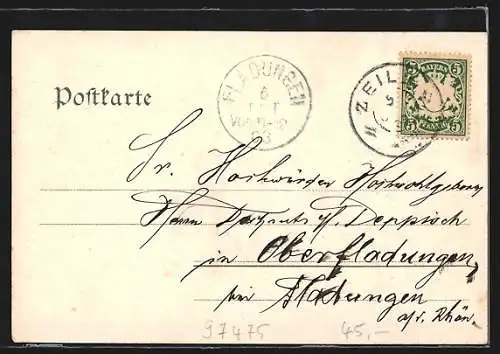 Postkarte
FLADUNGEN
6
03
ZEIL
BAYERN
5 5
5 PFENNIG 5
Sr. Hochwürden Hochwohlgeboren
Herrn
Deppisch
in Oberfladungen
bei Fladungen
a/v. Rhön.
97475 45,-